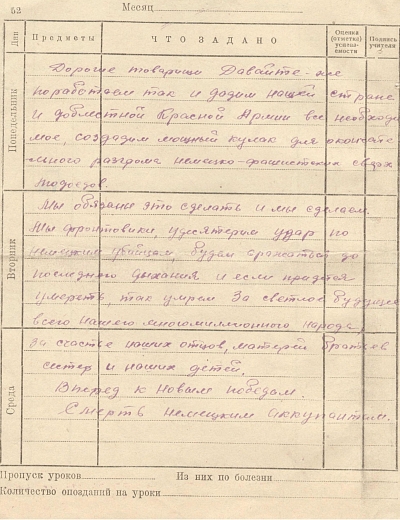 52
Месяц
Дни
Предметы
ЧТО ЗАДАНО
Оценка (отметка) успеваемости
Подпись учителя
Понедельник
Вторник
Среда
Дорогие товарищи Давайте-же
поработаем так и дадим нашей стране
и доблестной Красной Армии все необходи
мое, создадим мощный кулак для окончате
льного разгрома немецко-фашистских
людоедов.
Мы обязаны это сделать и мы сделаем.
Мы фронтовики, удесятерим удар по
немецким убийцам, будем сражаться до
последнего дыхания и если придется
умереть, так умрем За светлое будущее
всего нашего многомиллионного народа,
За счастье наших отцов, матерей братьев
сестер и наших детей.
Вперед к новым победам.
Смерть немецким аккупантам.
Пропуск уроков
Из них по болезни
Количество опозданий на уроки